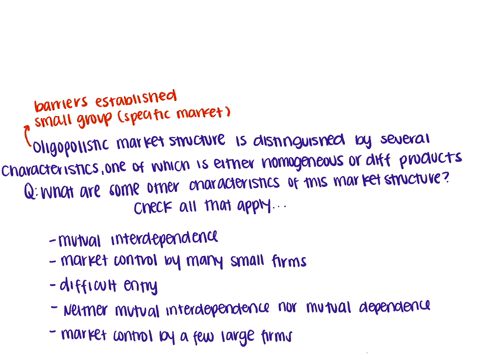 barriers established
small group (specific market)
Oligopolistic market structure is distinguished by several
characteristics, one of which is either homogeneous or diff products
Q: What are some other characteristics of this market structure?
Check all that apply...
- mutual interdependence
- market control by many small firms
- difficult entry
- Neither mutual interdependence nor mutual dependence
- market control by a few large firms